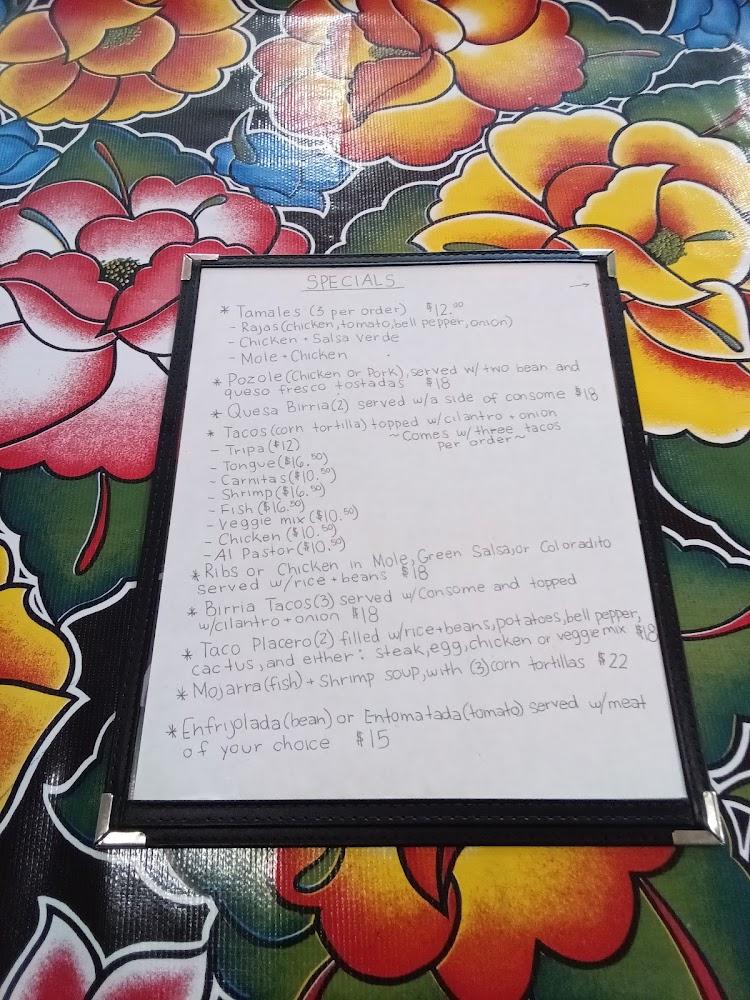 SPECIALS
→
* Tamales (3 per order) $12.00
- Rajas (chicken, tomato, bell pepper, onion)
- Chicken + Salsa Verde
- Mole + Chicken
* Pozole (Chicken or Pork), served w/ two bean and
queso fresco tostadas $18
* Quesa Birria (2) served w/a side of consome $18
* Tacos (corn tortilla) topped w/cilantro + onion
~Comes w/three tacos
per order~
- Tripa ($12)
- Tongue ($16.50)
- Carnitas ($10.50)
- Shrimp ($16.50)
- Fish ($16.50)
- Veggie mix ($10.50)
- Chicken ($10.50)
- Al Pastor ($10.50)
* Ribs or Chicken in Mole, Green Salsa, or Coloradito
served w/rice + beans $18
* Birria Tacos (3) served w/Consome and topped
w/cilantro + onion $18
* Taco Placero (2) filled w/rice + beans, potatoes, bell pepper,
cactus, and either: steak, egg, chicken or veggie mix $18
* Mojarra (fish) + Shrimp soup, with (3) corn tortillas $22
* Enfrijolada (bean) or Entomatada (tomato) served w/meat
of your choice $15